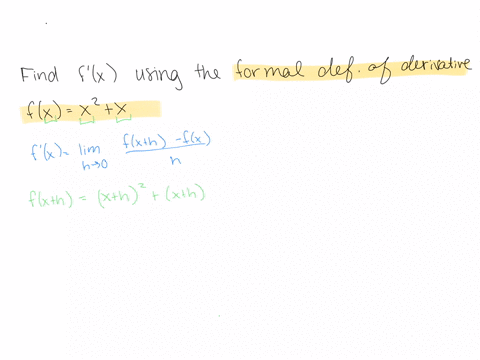 Find f'(x) using the formal def. of derivative
f(x) = x² + x
f'(x) = lim h→0 f(x+h) - f(x) / h
f(x+h) = (x+h)² + (x+h)